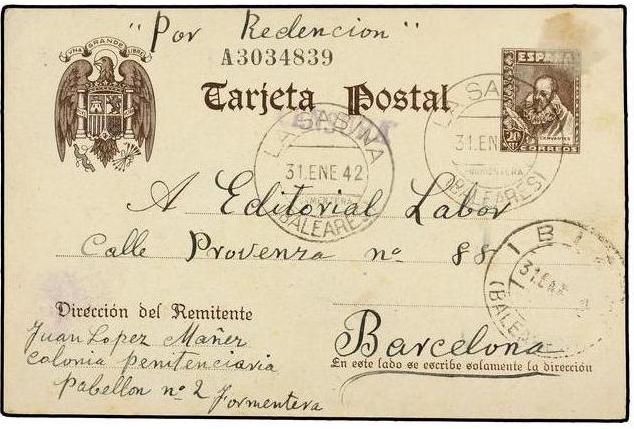 "Por Redencion"
UNA GRANDE LIBRE
A3034839
Tarjeta Postal
ESPAÑA
CERVANTES
20
CORREOS
LA SABINA
31 ENE 42
(BALEARES)
LA SA
31 EN
FORMENTERA
(BALEARES)
A Editorial Labor
Calle Provenza nº 88
31 ENE
(BALEA
Dirección del Remitente
Juan Lopez Mañez
colonia penitenciaria
pabellon nº 2 Formentera
Barcelona
En este lado se escribe solamente la dirección